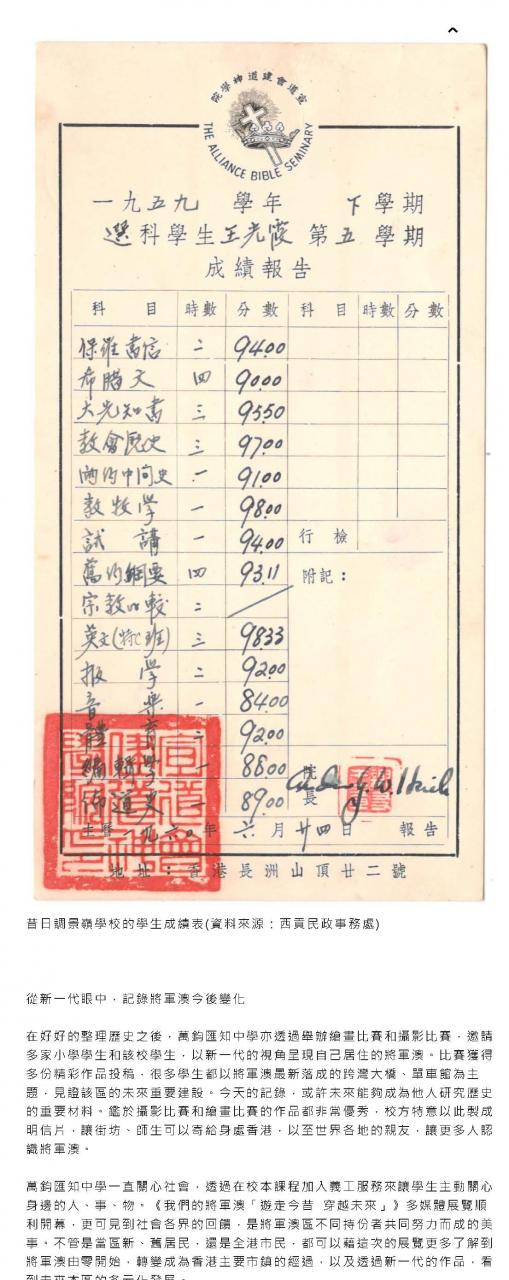 宣道會建道神學院
THE ALLIANCE BIBLE SEMINARY
一九五九 學年 下學期
選科學生王光霞 第五學期
成績報告
科 目 時數 分數 科 目 時數 分數
保羅書信 二 94.00
希腊文 四 90.00
大先知書 三 95.50
教會歷史 三 97.00
兩約中间史 一 91.00
教牧學 一 98.00
試講 一 94.00 行檢
舊約綱要 四 93.11 附記：
宗教比較 二
英文(特班) 三 98.33
报學 二 92.00
音樂 一 84.00
體育 二 92.00
編輯學 一 88.00 院長
佈道史 一 89.00
主曆一九六〇年 六月廿四日 報告
地址：香港長洲山頂廿二號
昔日調景嶺學校的學生成績表(資料來源：西貢民政事務處)
從新一代眼中，記錄將軍澳今後變化
在好好的整理歷史之後，萬鈞匯知中學亦透過舉辦繪畫比賽和攝影比賽，邀請
多家小學學生和該校學生，以新一代的視角呈現自己居住的將軍澳。比賽獲得
多份精彩作品投稿，很多學生都以將軍澳最新落成的跨灣大橋、單車館為主
題，見證該區的未來重要建設。今天的記錄，或許未來能夠成為他人研究歷史
的重要材料。鑑於攝影比賽和繪畫比賽的作品都非常優秀，校方特意以此製成
明信片，讓街坊、師生可以寄給身處香港，以至世界各地的親友，讓更多人認
識將軍澳。
萬鈞匯知中學一直關心社會，透過在校本課程加入義工服務來讓學生主動關心
身邊的人、事、物。《我們的將軍澳「遊走今昔 穿越未來」》多媒體展覽順
利開幕，更可見到社會各界的回饋，是將軍澳區不同持份者共同努力而成的美
事。不管是當區新、舊居民，還是全港市民，都可以藉這次的展覽更多了解到
將軍澳由零開始，轉變成為香港主要市鎮的經過，以及透過新一代的作品，看
到未來本區的多元化發展。